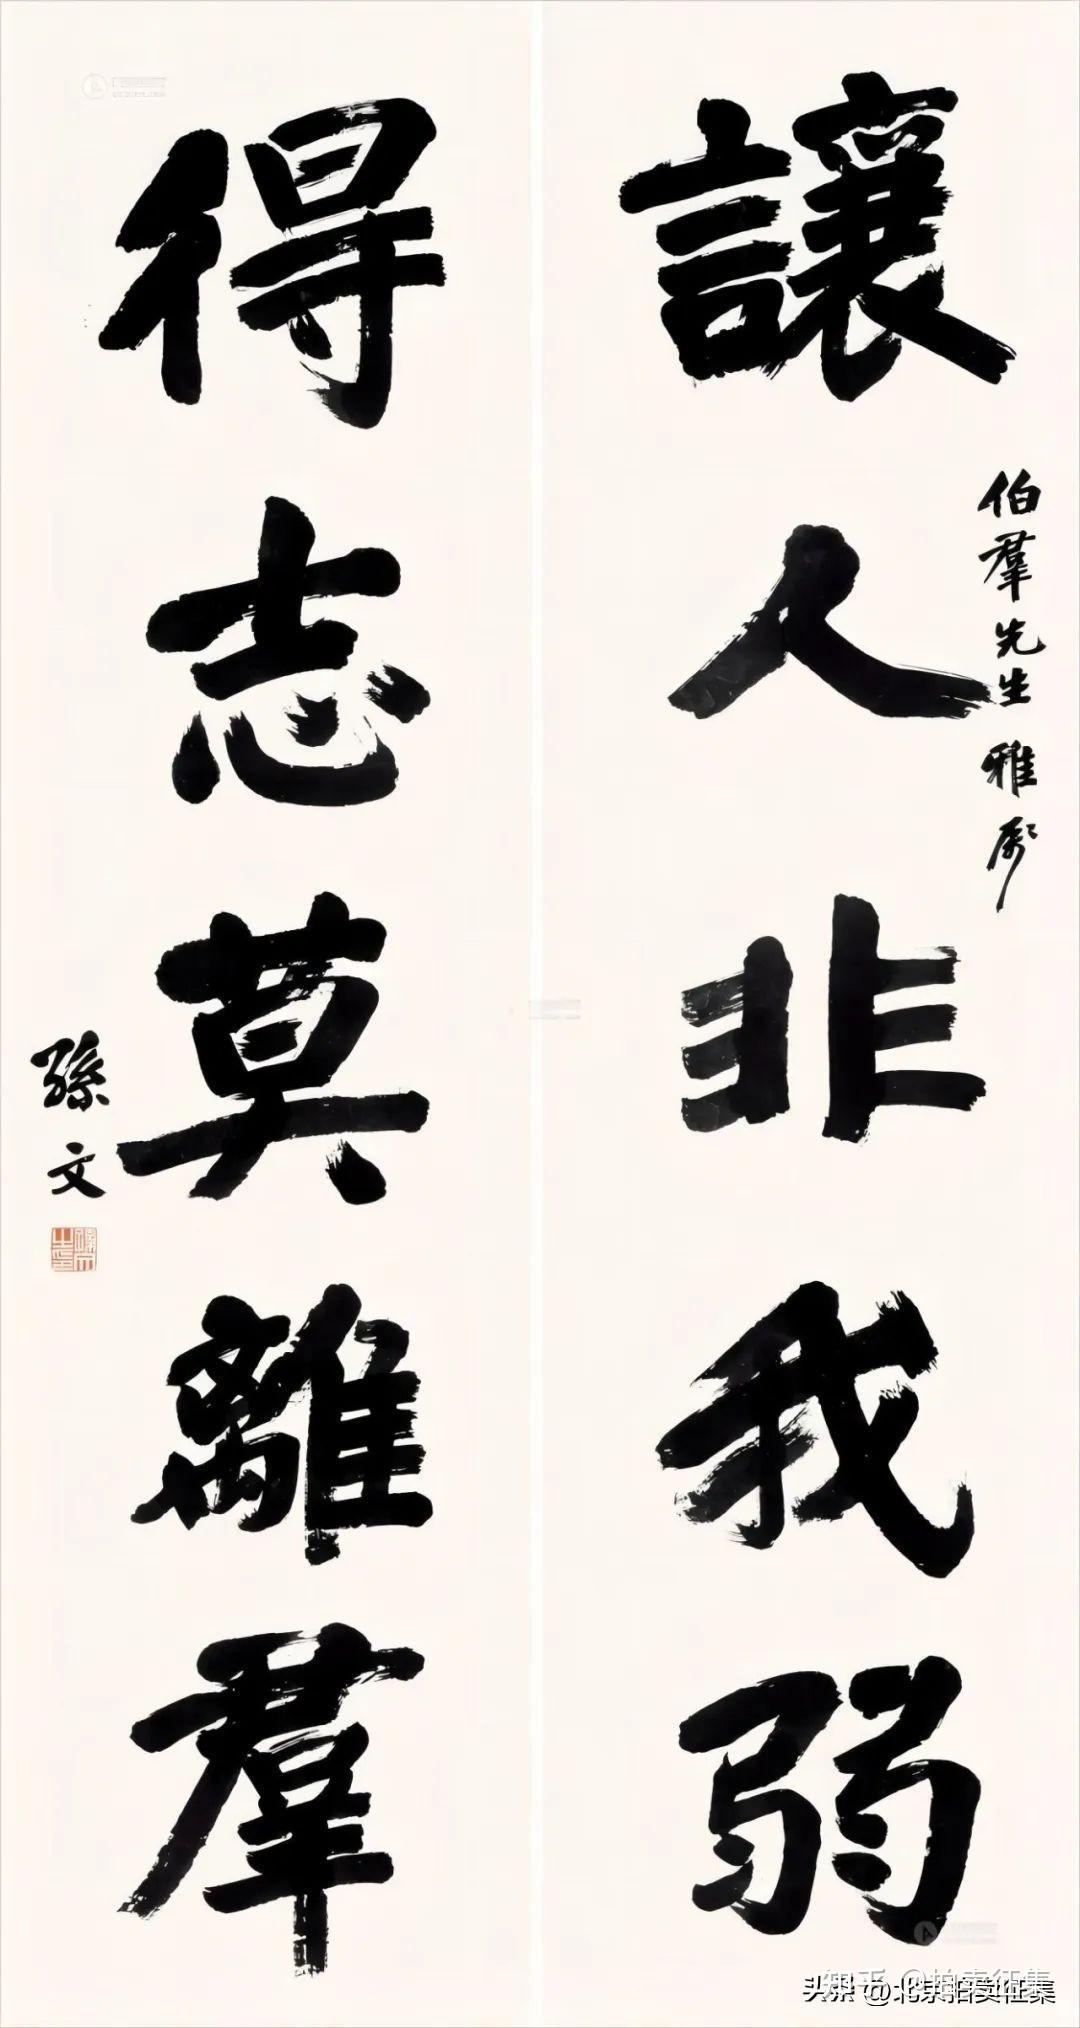 讓人非我弱
伯羣先生雅屬
得志莫離羣
孫文
孫文之印
知乎 @拍卖征集
头条 @北京拍卖征集